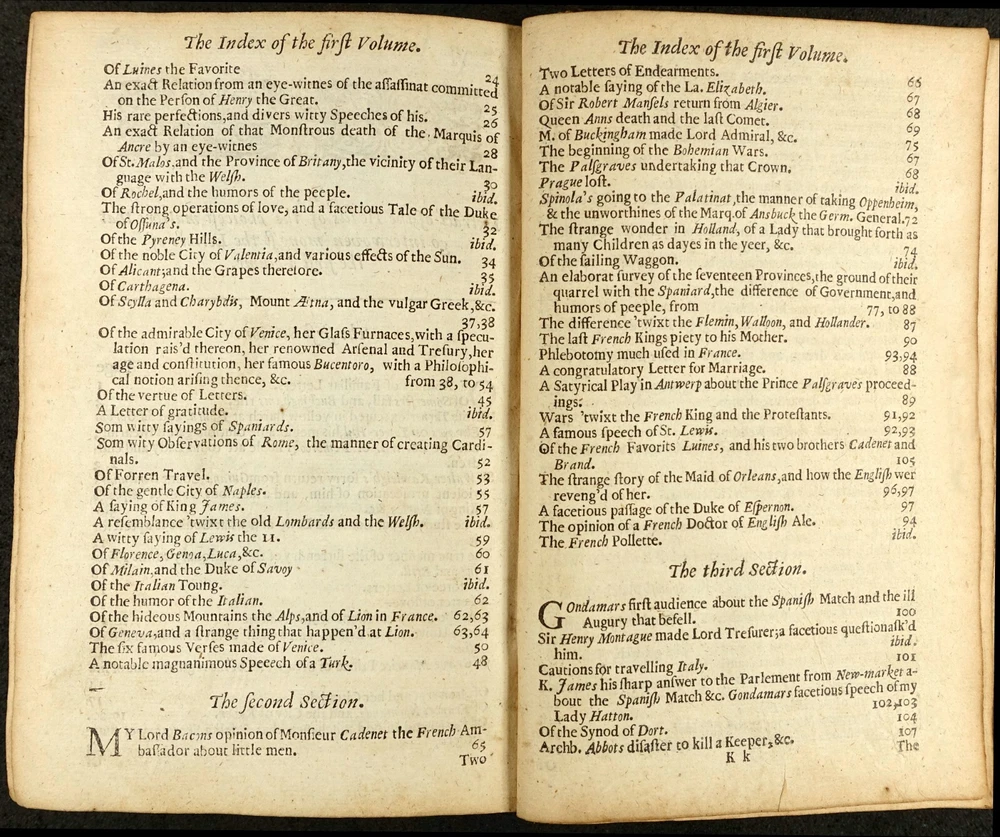 The Index of the firſt Volume.
Of Luines the Favorite 24
An exact Relation from an eye-witnes of the aſſaſſinat committed
on the Perſon of Henry the Great. 25
His rare perfections, and divers witty Speeches of his. 26
An exact Relation of that Monſtrous death of the Marquis of
Ancre by an eye-witnes 28
Of St. Malos. and the Province of Britany, the vicinity of their Lan-
guage with the Welſh. 30
Of Rochel, and the humors of the peeple. ibid.
The ſtrong operations of love, and a facetious Tale of the Duke
of Oſſuna's. 32
Of the Pyreney Hills. ibid.
Of the noble City of Valentia, and various effects of the Sun. 34
Of Alicant; and the Grapes therefore. 35
Of Carthagena. ibid.
Of Scylla and Charybdis, Mount Ætna, and the vulgar Greek, &c.
37,38
Of the admirable City of Venice, her Glaſs Furnaces, with a ſpecu-
lation rais'd thereon, her renowned Arſenal and Treſury, her
age and conſtitution, her famous Bucentoro, with a Philoſophi-
cal notion ariſing thence, &c. from 38, to 54
Of the vertue of Letters. 45
A Letter of gratitude. ibid.
Som witty ſayings of Spaniards. 57
Som wity Obſervations of Rome, the manner of creating Cardi-
nals. 52
Of Forren Travel. 53
Of the gentle City of Naples. 55
A ſaying of King James. 57
A reſemblance 'twixt the old Lombards and the Welſh. ibid.
A witty ſaying of Lewis the 11. 59
Of Florence, Genoa, Luca, &c. 60
Of Milain, and the Duke of Savoy 61
Of the Italian Toung. ibid.
Of the humor of the Italian. 62
Of the hideous Mountains the Alps, and of Lion in France. 62,63
Of Geneva, and a ſtrange thing that happen'd at Lion. 63,64
The ſix famous Verſes made of Venice. 50
A notable magnanimous Speeech of a Turk. 48
The ſecond Section.
MY Lord Bacons opinion of Monſieur Cadenet the French Am-
baſſador about little men. 65
Two
The Index of the firſt Volume.
Two Letters of Endearments. 66
A notable ſaying of the La. Elizabeth. 67
Of Sir Robert Manſels return from Algier. 68
Queen Anns death and the laſt Comet. 69
M. of Buckingham made Lord Admiral, &c. 75
The beginning of the Bohemian Wars. 67
The Palſgraves undertaking that Crown, 68
Prague loſt. ibid.
Spinola's going to the Palatinat, the manner of taking Oppenheim,
& the unworthines of the Marq. of Ansbuck the Germ. General. 72
The ſtrange wonder in Holland, of a Lady that brought forth as
many Children as dayes in the yeer, &c. 74
Of the ſailing Waggon. ibid.
An elaborat ſurvey of the ſeventeen Provinces, the ground of their
quarrel with the Spaniard, the difference of Government, and
humors of peeple, from 77, to 88
The difference 'twixt the Flemin, Walloon, and Hollander. 87
The laſt French Kings piety to his Mother. 90
Phlebotomy much uſed in France. 93,94
A congratulatory Letter for Marriage. 88
A Satyrical Play in Antwerp about the Prince Palſgraves proceed-
ings: 89
Wars 'twixt the French King and the Proteſtants. 91,92
A famous ſpeech of St. Lewis. 92,93
Of the French Favorits Luines, and his two brothers Cadenet and
Brand. 105
The ſtrange ſtory of the Maid of Orleans, and how the Engliſh wer
reveng'd of her. 96,97
A facetious paſſage of the Duke of Eſpernon. 97
The opinion of a French Doctor of Engliſh Ale. 94
The French Pollette. ibid.
The third Section.
GOndamars firſt audience about the Spaniſh Match and the ill
Augury that befell. 100
Sir Henry Montague made Lord Treſurer; a facetious queſtion aſk'd
him. ibid.
Cautions for travelling Italy. 101
K. James his ſharp anſwer to the Parlement from New-market a-
bout the Spaniſh Match &c. Gondamars facetious ſpeech of my
Lady Hatton. 102,103
Of the Synod of Dort. 104
Archb. Abbots diſaſter to kill a Keeper, &c. 107
K k The